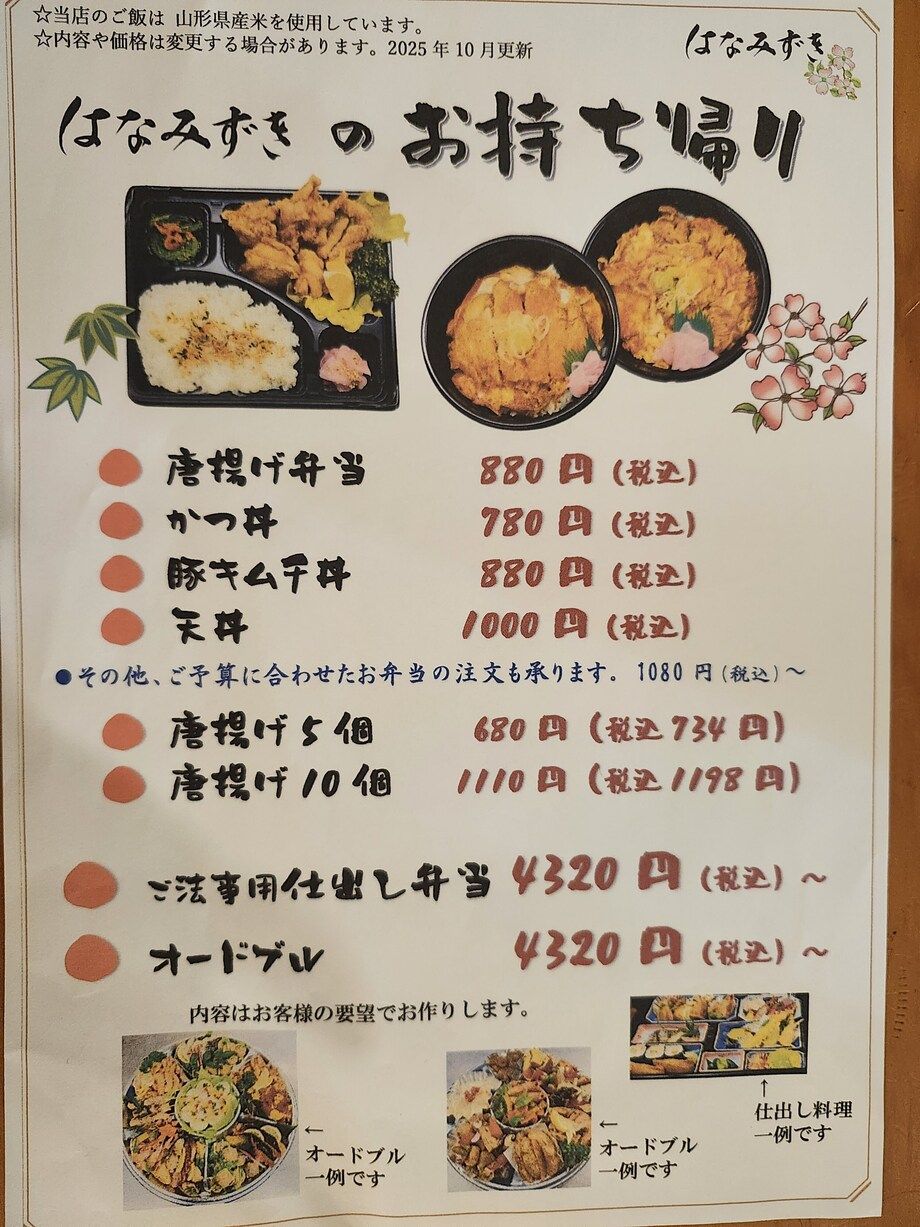 ☆当店のご飯は 山形県産米を使用しています。
☆内容や価格は変更する場合があります。2025年10月更新
はなみずき
はなみずき の お持ち帰り
唐揚げ弁当 880円(税込)
かつ丼 780円(税込)
豚キムチ丼 880円(税込)
天丼 1000円(税込)
●その他、ご予算に合わせたお弁当の注文も承ります。 1080円(税込)～
唐揚げ5個 680円(税込734円)
唐揚げ10個 1110円(税込1198円)
ご法事用仕出し弁当 4320円(税込)～
オードブル 4320円(税込)～
内容はお客様の要望でお作りします。
↑
仕出し料理
一例です
←
オードブル
一例です
←
オードブル
一例です